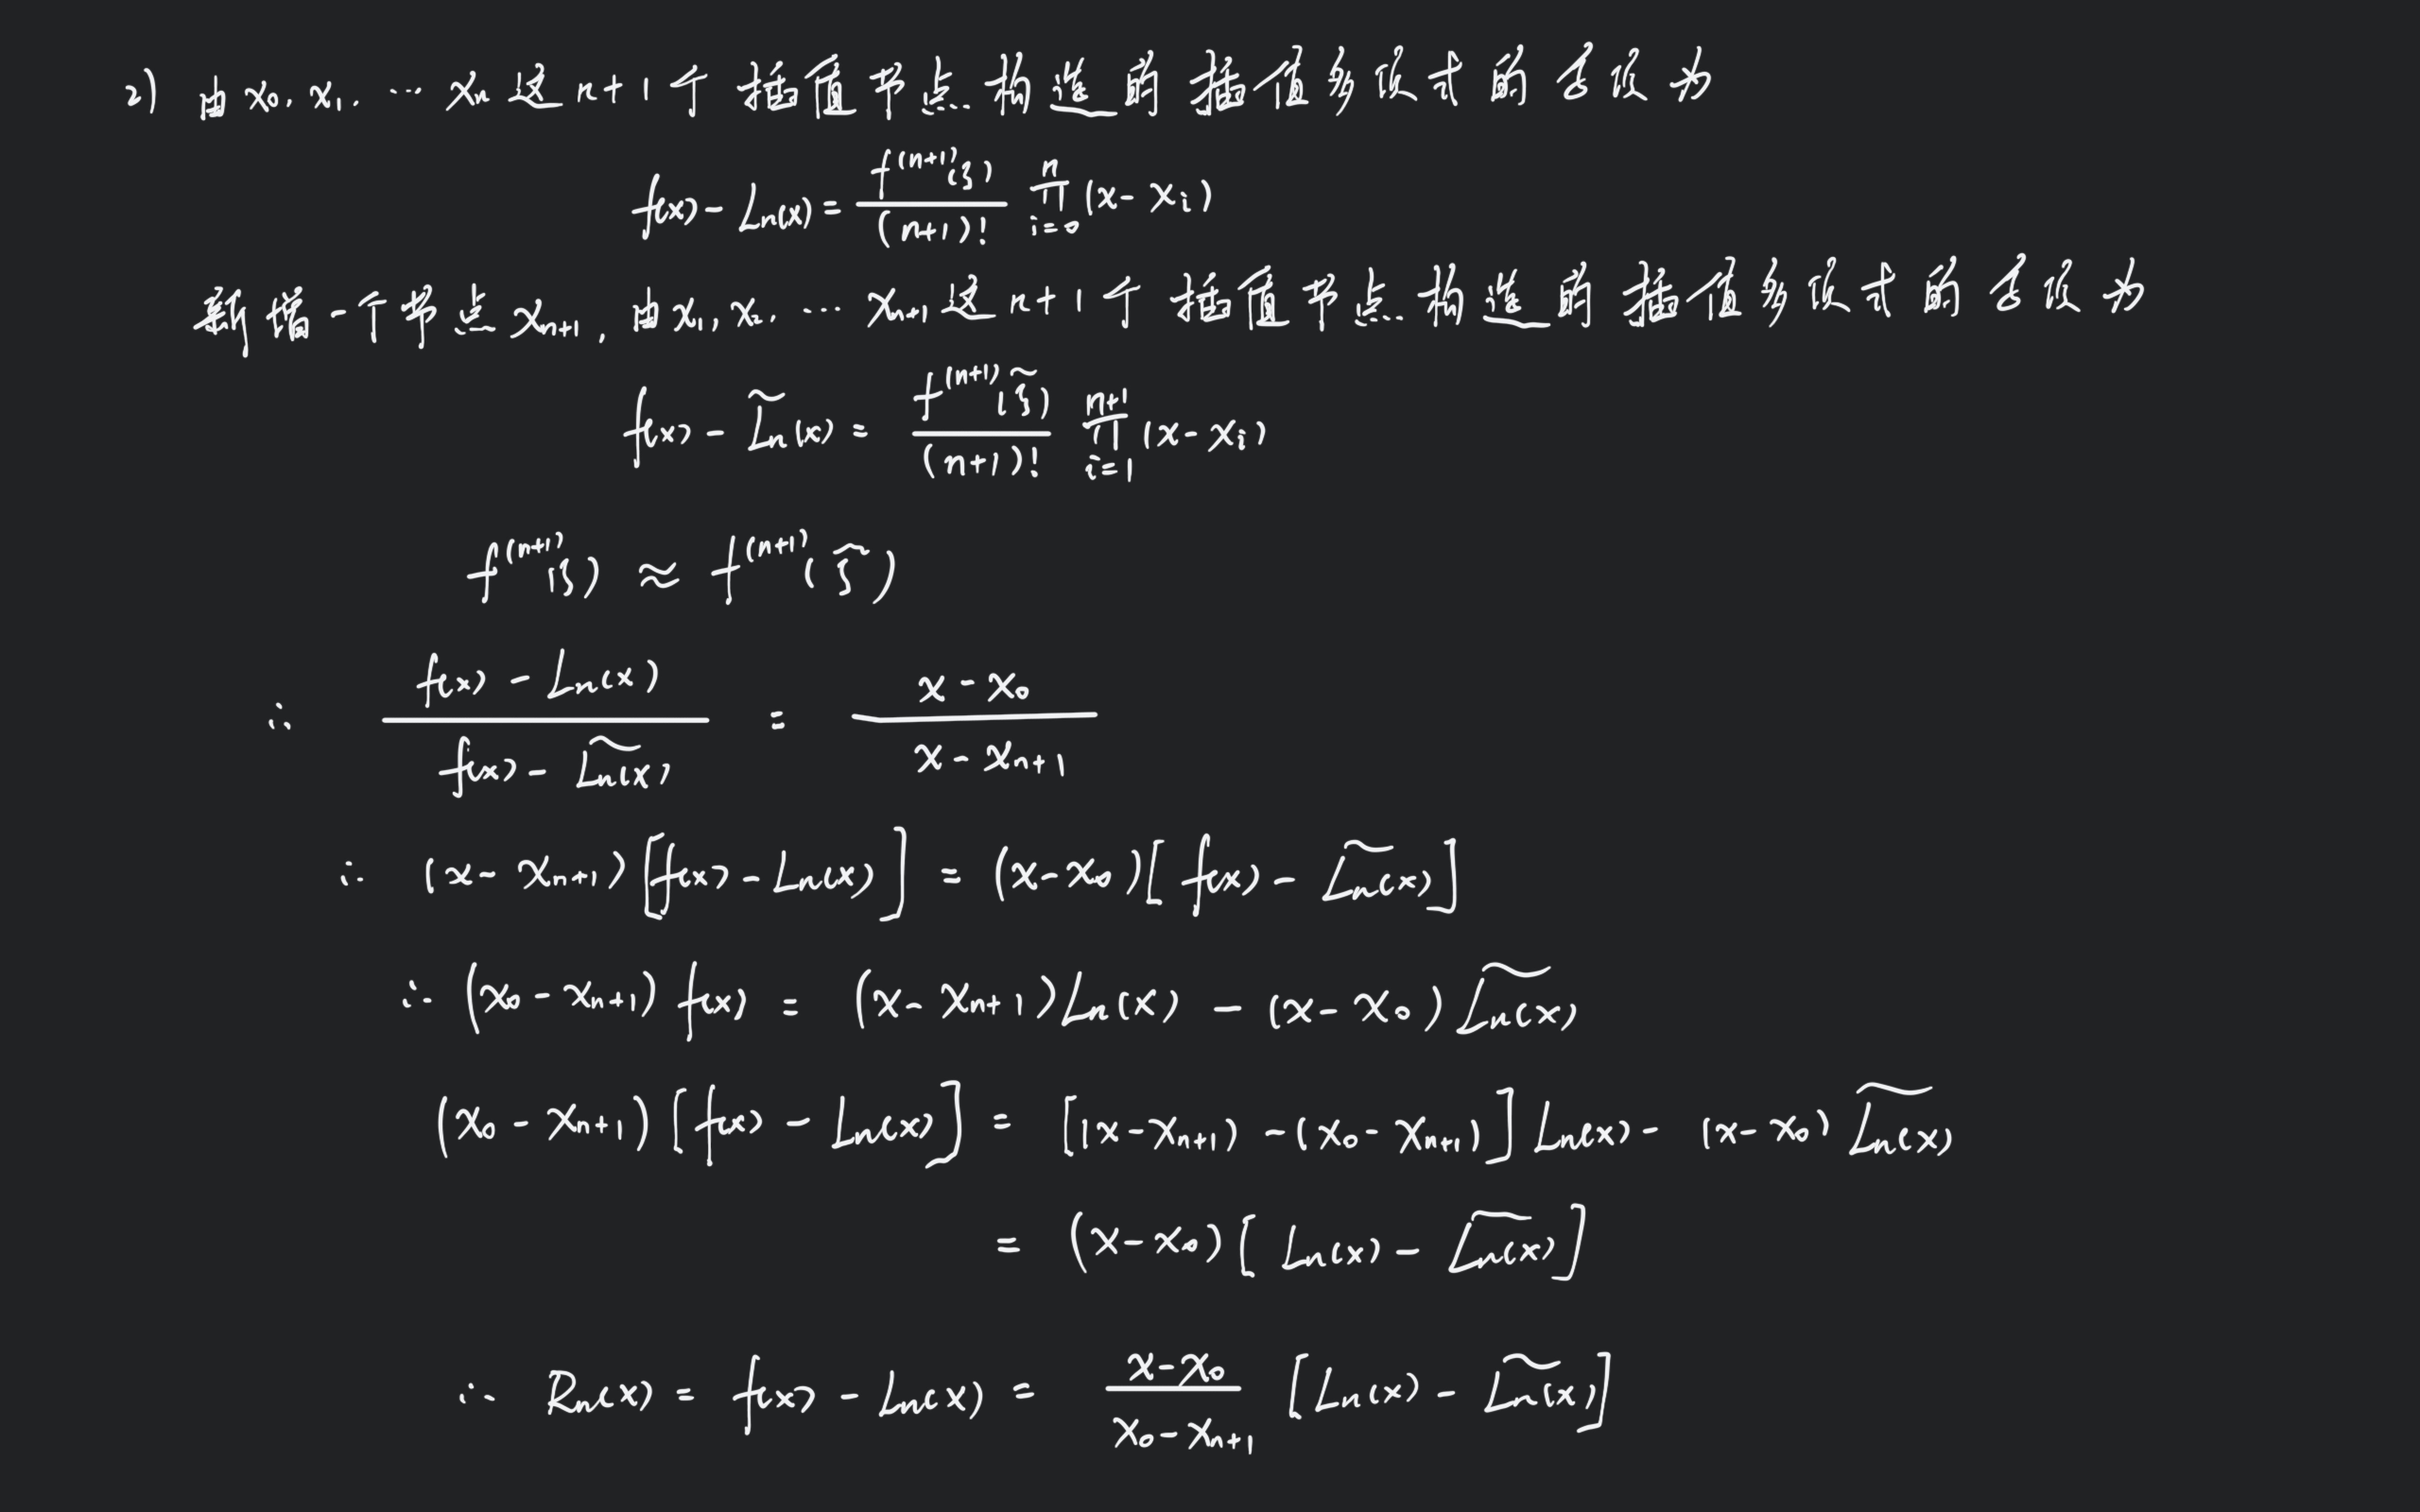 2) 由 x₀, x₁, … xₙ 这 n+1 个 插值节点构造的插值多项式的余项为
f(x) - Lₙ(x) = \frac{f^{(n+1)}(ξ)}{(n+1)!} \prod_{i=0}^{n} (x - x_i)
新增一个节点 xₙ₊₁, 由 x₁, x₂, … xₙ₊₁ 这 n+1 个 插值节点构造的插值多项式的余项为
f(x) - \widetilde{L}ₙ(x) = \frac{f^{(n+1)}(\widetilde{ξ})}{(n+1)!} \prod_{i=1}^{n+1} (x - x_i)
f^{(n+1)}(ξ) ≈ f^{(n+1)}(\widetilde{ξ})
∴ \frac{f(x) - Lₙ(x)}{f(x) - \widetilde{Lₙ(x)}} = \frac{x - x₀}{x - xₙ₊₁}
∴ (x - xₙ₊₁)[f(x) - Lₙ(x)] = (x - x₀)[f(x) - \widetilde{Lₙ(x)}]
∴ (x₀ - xₙ₊₁) f(x) = (x - xₙ₊₁) Lₙ(x) - (x - x₀) \widetilde{Lₙ(x)}
(x₀ - xₙ₊₁)[f(x) - Lₙ(x)] = [(x - xₙ₊₁) - (x₀ - xₙ₊₁)] Lₙ(x) - (x - x₀) \widetilde{Lₙ(x)}
= (x - x₀)[Lₙ(x) - \widetilde{Lₙ(x)}]
∴ Rₙ(x) = f(x) - Lₙ(x) = \frac{x - x₀}{x₀ - xₙ₊₁} [Lₙ(x) - \widetilde{Lₙ(x)}]